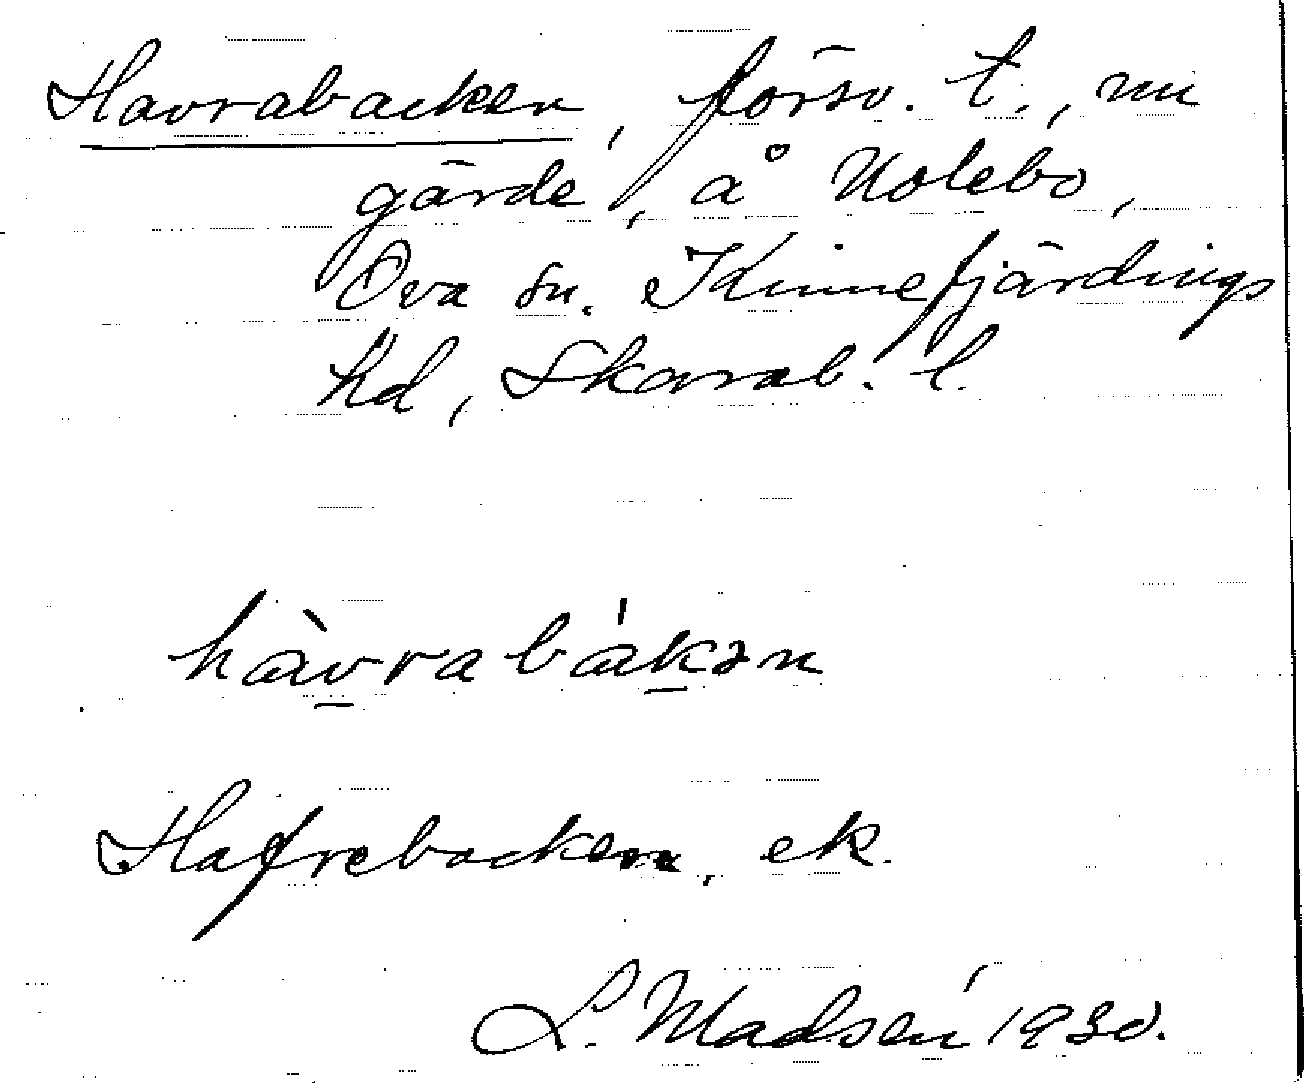 Havrabacken, försv. t., nu
gärde, å Nolebo,
Öva sn. Kinnefjärdings
hd, Skarab. l.
hàvrabákən
Hafrebacken, ek.
L. Madsén 1930.